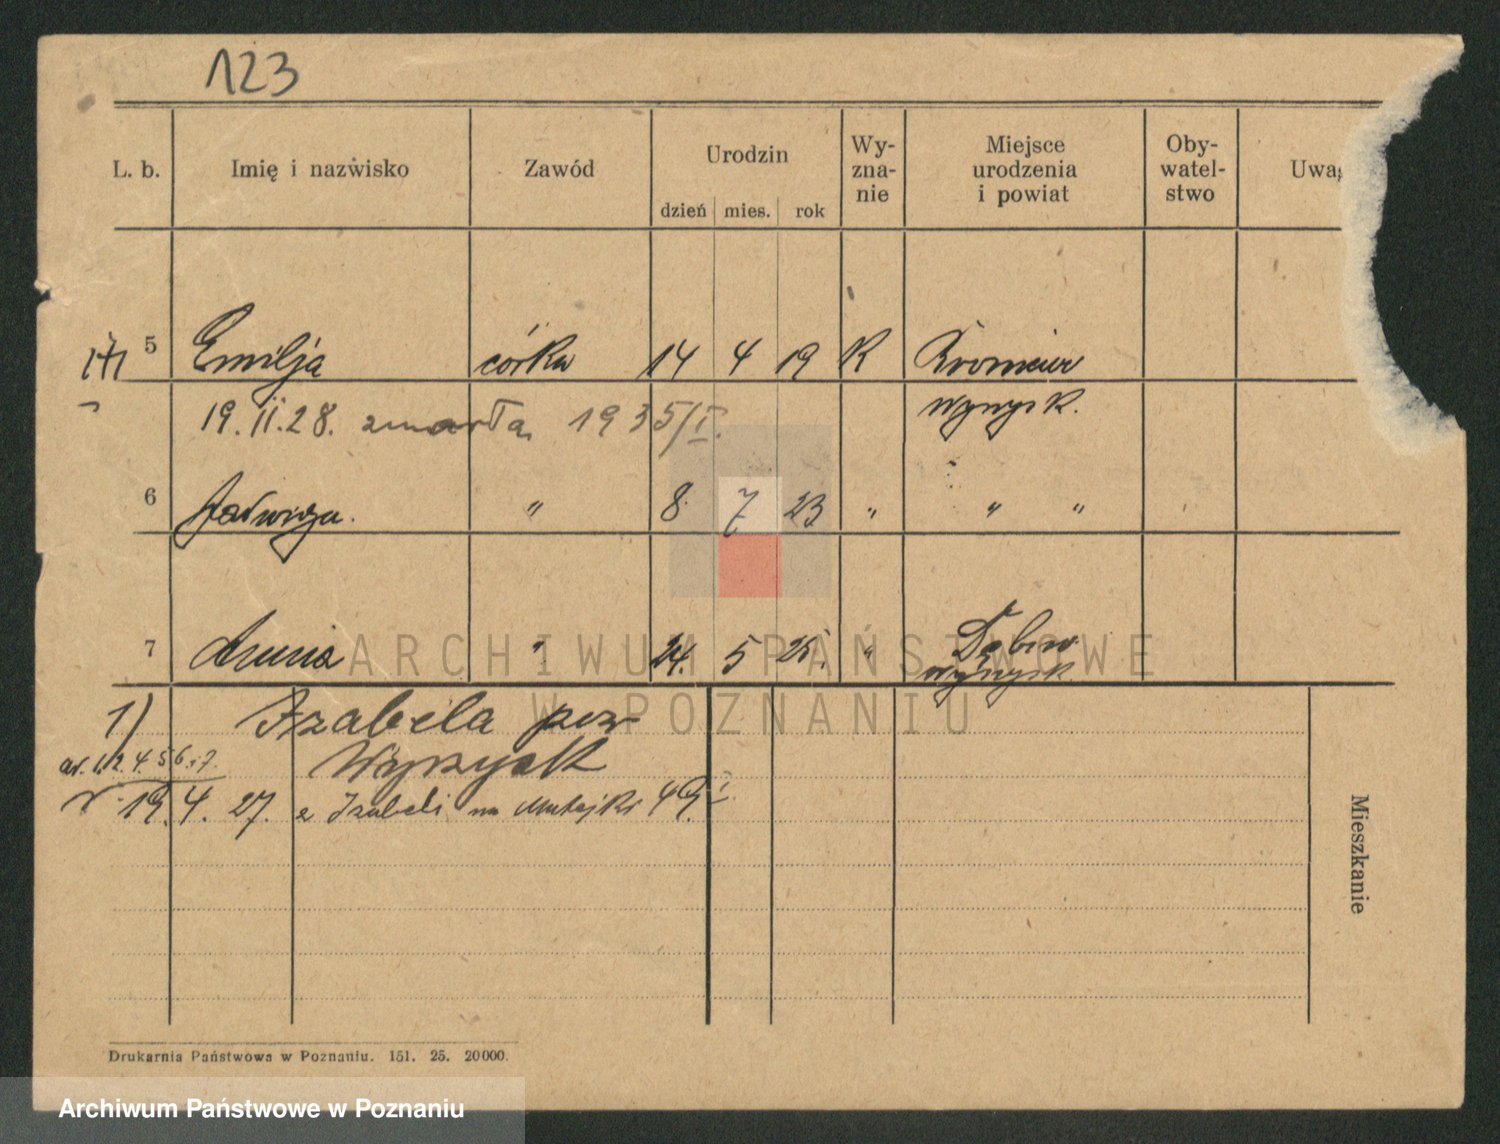 123
L. b. Imię i nazwisko Zawód Urodzin dzień mies. rok Wy-zna-nie Miejsce urodzenia i powiat Oby-watel-stwo Uwag
5 Emilja córka 14 4 19 K
19.II.28. zmarła 1935/I. Wyrzysk.
6 Jadwiga. " 8. 7 23 " " "
7 Anna " 24. 5 25. "
Wyrzysk
1) Izabela pow
Wyrzysk
1. 2. 4. 5 6. i 7.
19. 4. 27. z Izabeli na Matejki 49 I.
Mieszkanie
Drukarnia Państwowa w Poznaniu. 151. 25. 20000.
ARCHIWUM PAŃSTWOWE
W POZNANIU
Archiwum Państwowe w Poznaniu